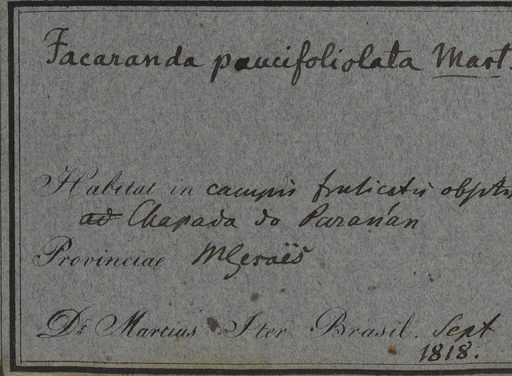 Jacaranda paucifoliolata Mart.
Habitat in campis fruticetis obsitis
ad Chapada do Paranán
Provinciae MGeraës
Dr. Martius Iter Brasil. Sept
1818.